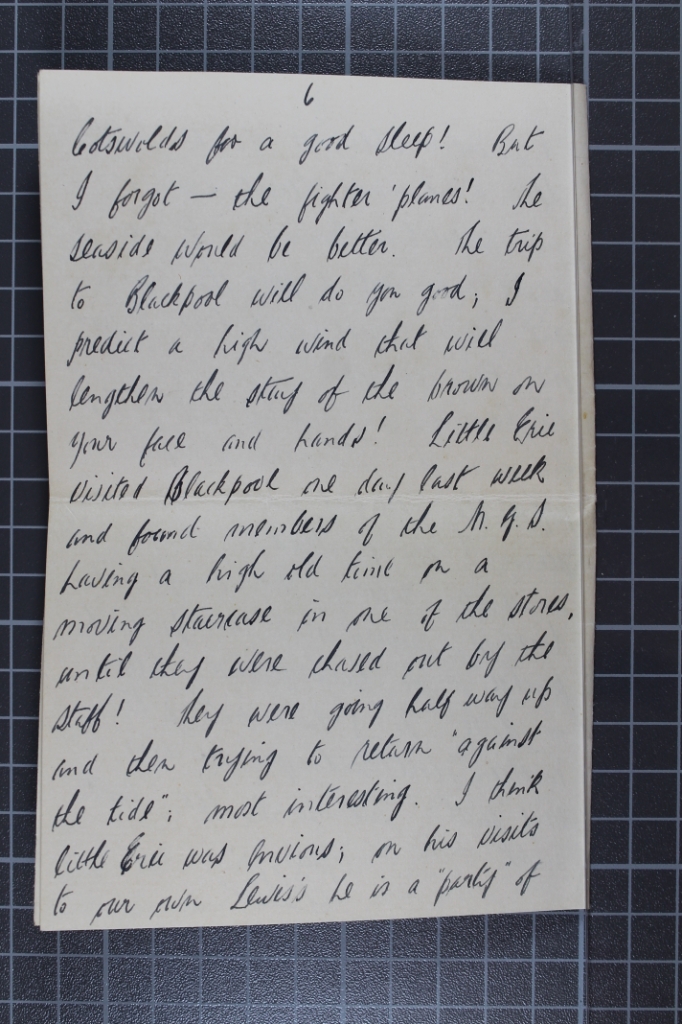 6
Cotswolds for a good sleep! But
I forgot — the fighter 'planes! The
seaside would be better. The trip
to Blackpool will do you good; I
predict a high wind that will
lengthen the stay of the brown on
your face and hands! Little Eric
visited Blackpool one day last week
and found members of the M.G.S.
having a high old time on a
moving staircase in one of the stores,
until they were chased out by the
staff! They were going half way up
and then trying to return "against
the tide"; most interesting. I think
little Eric was envious; on his visits
to our own Lewis's he is a "party" of